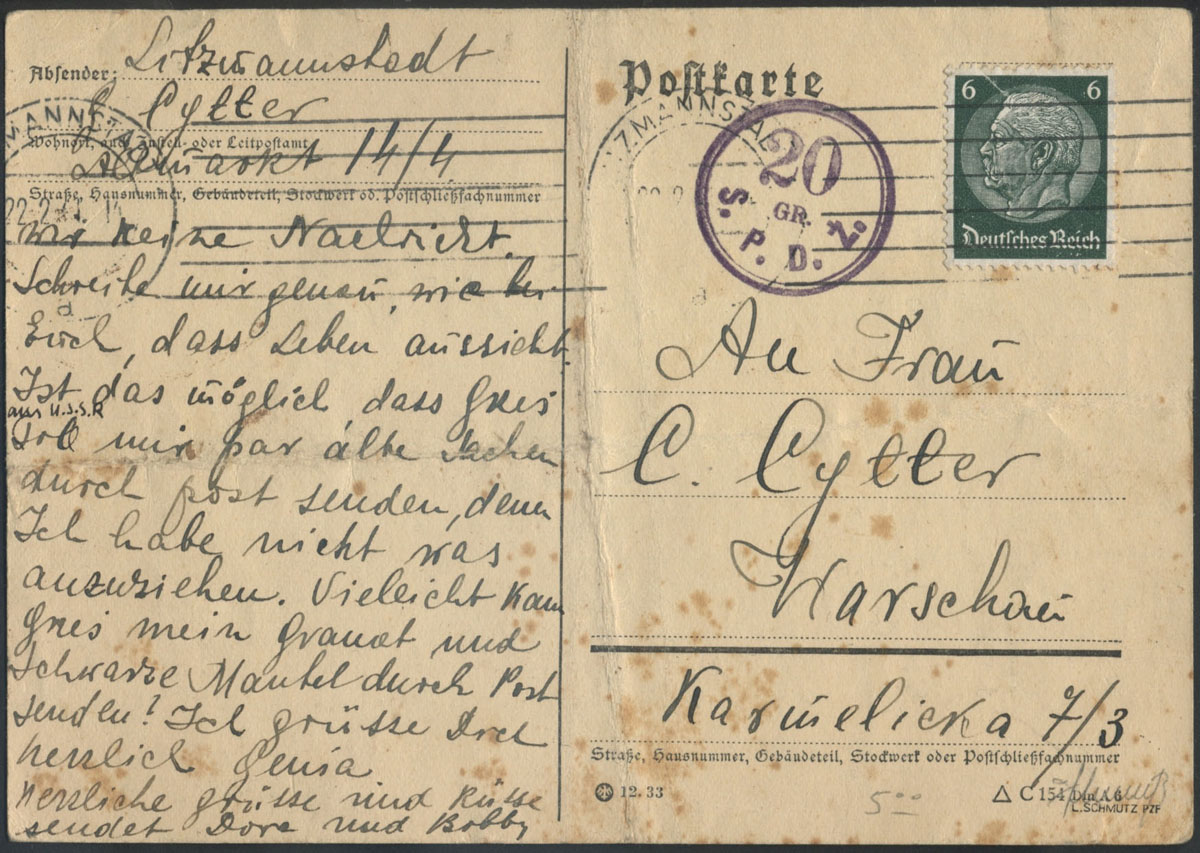 Absender: Litzmannstadt
Cytter
Wohnort, auch Zustell- oder Leitpostamt
14/4
Straße, Hausnummer, Gebäudeteil, Stockwerk od. Postschließfachnummer
MANNSTA
22.2
14
a
mir keine Nachricht.
Schreibe mir genau, wie bei
Euch, dass Leben aussicht.
Ist das möglich dass Gnes
aus U.S.S.R
soll mir par alte Sachen
durch post senden, denn
Ich habe nicht was
anzuziehen. Vielleicht kann
Gnes mein Granat und
Schwarze Mantel durch Post
senden? Ich grüsse Dich
herzlich Genia
Herzliche grüsse und küsse
sendet Dora und Bobby
Postkarte
ZMANNSTA
20
GR.
S. P. D. Ż.
a
6 6
Deutsches Reich
An Frau
C. Cytter
Warschau
Karmelicka 7/3
Straße, Hausnummer, Gebäudeteil, Stockwerk oder Postschließfachnummer
12. 33
5⁰⁰
C 154 Din A 6
L.SCHMUTZ PZF